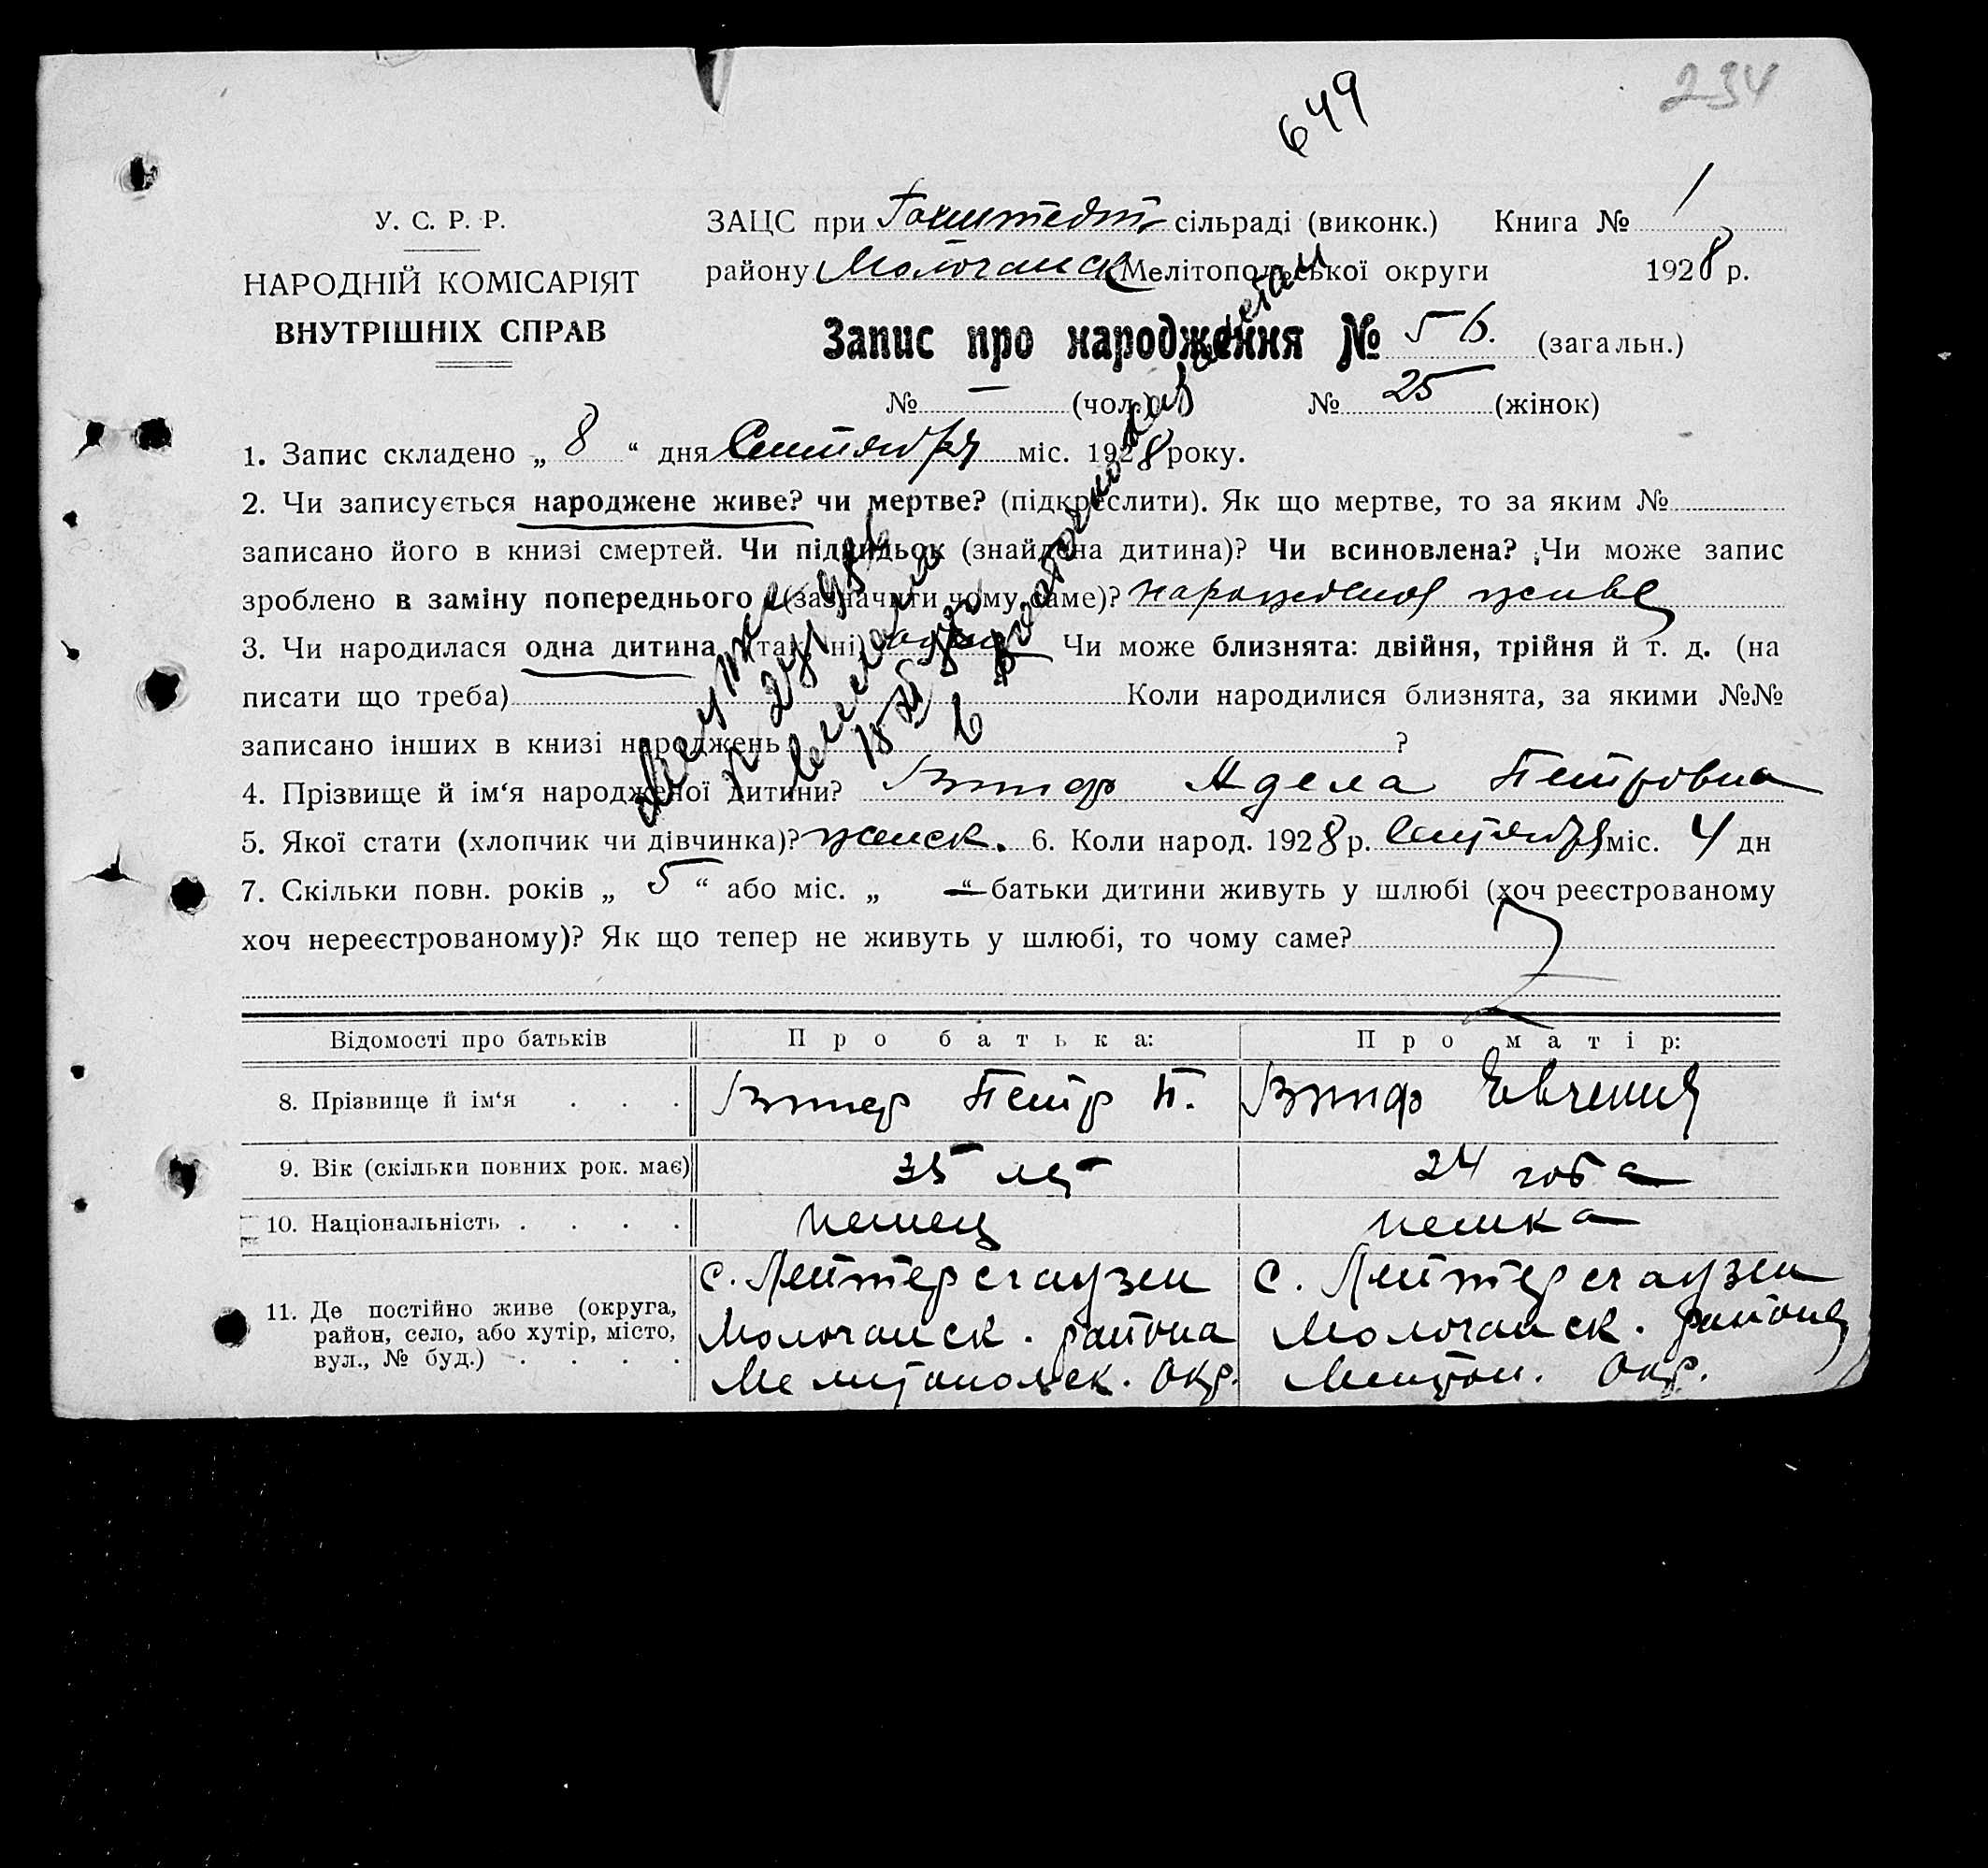 234
649
У. С. Р. Р.
НАРОДНІЙ КОМІСАРІЯТ
ВНУТРІШНІХ СПРАВ
ЗАЦС при Гохштедт сільраді (виконк.) Книга № 1
району Молочанск Мелітопольської округи 1928 р.
Запис про народження № 56. (загальн.)
№ — (чол.) № 25 (жінок)
1. Запис складено „ 8 “ дня Сентября міс. 1928 року.
2. Чи записується народжене живе? чи мертве? (підкреслити). Як що мертве, то за яким №
записано його в книзі смертей. Чи підкидьок (знайдена дитина)? Чи всиновлена? Чи може запис
зроблено в заміну попереднього (зазначити чому саме)? живе
3. Чи народилася одна дитина (так, ні) Чи може близнята: двійня, трійня й т. д. (на
писати що треба) Коли народилися близнята, за якими №№
записано інших в книзі народжень ?
4. Прізвище й ім‘я народженої дитини? Адела Петровна
5. Якої стати (хлопчик чи дівчинка)? женск. 6. Коли народ. 1928 р. Сентября міс. 4 дн
7. Скільки повн. років „ 5 “ або міс. „ — “ батьки дитини живуть у шлюбі (хоч реєстрованому
хоч нереєстрованому)? Як що тепер не живуть у шлюбі, то чому саме?
Відомості про батьків Про батька: Про матір:
8. Прізвище й ім‘я . . . Петр П. Евгения
9. Вік (скільки повних рок. має) 35 лет 24 года
10. Національність . . . . немец немка
11. Де постійно живе (округа,
район, село, або хутір, місто,
вул., № буд.) . . . .
с. Лейтерсгаузен
Молочанск. района
Мелитопольск. Окр.
с. Лейтерсгаузен
Молочанск. района
Окр.